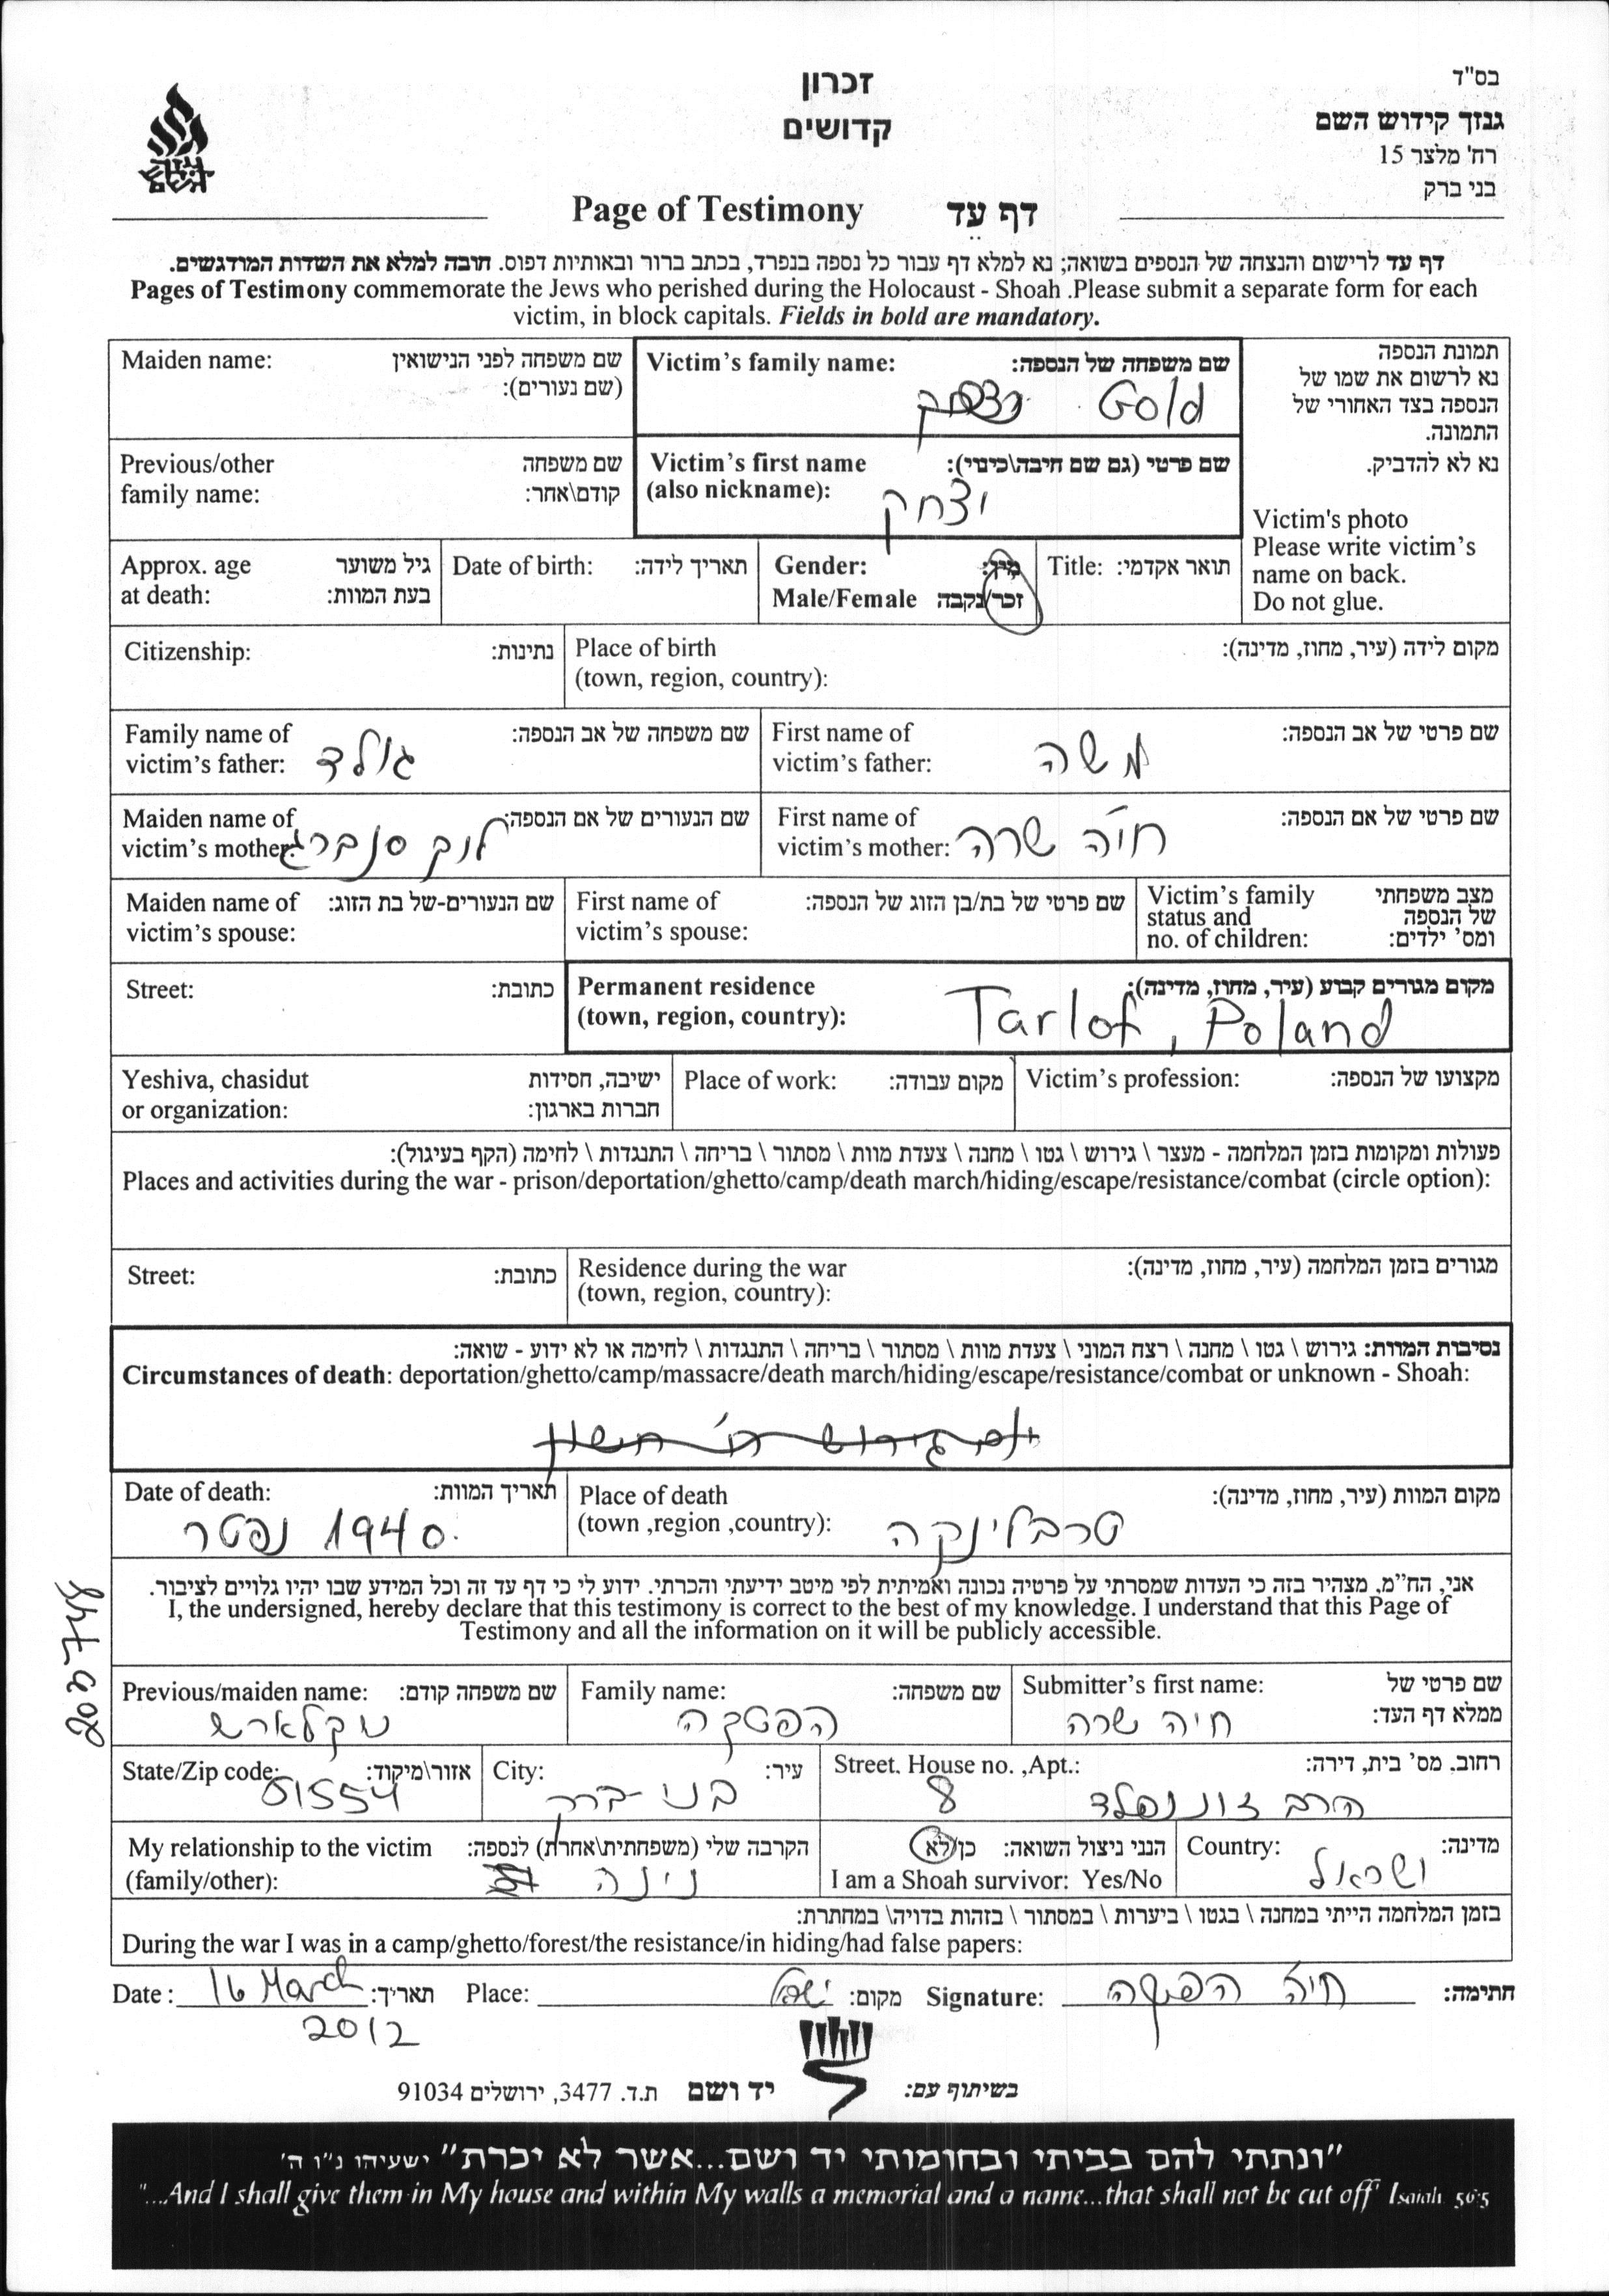 בס"ד
גנזך קידוש השם
רח' מלצר 15
בני ברק
זכרון
קדושים
Page of Testimony דף עד
דף עד לרישום והנצחה של הנספים בשואה; נא למלא דף עבור כל נספה בנפרד, בכתב ברור ובאותיות דפוס. חובה למלא את השדות המודגשים.
Pages of Testimony commemorate the Jews who perished during the Holocaust - Shoah .Please submit a separate form for each
victim, in block capitals. Fields in bold are mandatory.
תמונת הנספה
נא לרשום את שמו של
הנספה בצד האחורי של
התמונה.
נא לא להדביק.
Victim's photo
Please write victim's
name on back.
Do not glue.
Victim's family name: שם משפחה של הנספה:
Gold
Maiden name: שם משפחה לפני הנישואין
(שם נעורים):
Victim's first name שם פרטי (גם שם חיבה\כינוי):
(also nickname): יצחק
Previous/other שם משפחה
family name: קודם\אחר:
Title: תואר אקדמי:
Gender: מין:
Male/Female זכר/נקבה
Date of birth: תאריך לידה:
Approx. age גיל משוער
at death: בעת המוות:
Place of birth מקום לידה (עיר, מחוז, מדינה):
(town, region, country):
Citizenship: נתינות:
First name of שם פרטי של אב הנספה:
victim's father: משה
Family name of שם משפחה של אב הנספה:
victim's father: גולד
First name of שם פרטי של אם הנספה:
victim's mother: חיה שרה
Maiden name of שם הנעורים של אם הנספה:
victim's mother:
Victim's family מצב משפחתי
status and של הנספה
no. of children: ומס' ילדים:
First name of שם פרטי של בת/בן הזוג של הנספה:
victim's spouse:
Maiden name of שם הנעורים-של בת הזוג:
victim's spouse:
Permanent residence מקום מגורים קבוע (עיר, מחוז, מדינה):
(town, region, country): Tarlof, Poland
Street: כתובת:
Victim's profession: מקצועו של הנספה:
Place of work: מקום עבודה:
Yeshiva, chasidut ישיבה, חסידות
or organization: חברות בארגון:
פעולות ומקומות בזמן המלחמה - מעצר \ גירוש \ גטו \ מחנה \ צעדת מוות \ מסתור \ בריחה \ התנגדות \ לחימה (הקף בעיגול):
Places and activities during the war - prison/deportation/ghetto/camp/death march/hiding/escape/resistance/combat (circle option):
Residence during the war מגורים בזמן המלחמה (עיר, מחוז, מדינה):
(town, region, country):
Street: כתובת:
נסיבות המוות: גירוש \ גטו \ מחנה \ רצח המוני \ צעדת מוות \ מסתור \ בריחה \ התנגדות \ לחימה או לא ידוע - שואה:
Circumstances of death: deportation/ghetto/camp/massacre/death march/hiding/escape/resistance/combat or unknown - Shoah:
Place of death מקום המוות (עיר, מחוז, מדינה):
(town ,region ,country): טרבלינקה
Date of death: תאריך המוות:
1940. נפטר
אני, הח"מ, מצהיר בזה כי העדות שמסרתי על פרטיה נכונה ואמיתית לפי מיטב ידיעתי והכרתי. ידוע לי כי דף עד זה וכל המידע שבו יהיו גלויים לציבור.
I, the undersigned, hereby declare that this testimony is correct to the best of my knowledge. I understand that this Page of
Testimony and all the information on it will be publicly accessible.
Submitter's first name: שם פרטי של
ממלא דף העד:
חיה שרה
Family name: שם משפחה:
הפטקה
Previous/maiden name: שם משפחה קודם:
Street. House no. ,Apt.: רחוב. מס' בית, דירה:
הרב זוננפלד 8
City: עיר:
בני ברק
State/Zip code: אזור\מיקוד:
51554
Country: מדינה:
ישראל
הנני ניצול השואה: כן/לא
I am a Shoah survivor: Yes/No
My relationship to the victim הקרבה שלי (משפחתית\אחרת) לנספה:
(family/other): נינה
בזמן המלחמה הייתי במחנה \ בגטו \ ביערות \ במסתור \ בזהות בדויה\ במחתרת:
During the war I was in a camp/ghetto/forest/the resistance/in hiding/had false papers:
Date: 16 March תאריך: Place: מקום: Signature: חתימה:
2012
בשיתוף עם: יד ושם ת.ד. 3477, ירושלים 91034
"ונתתי להם בביתי ובחומותי יד ושם...אשר לא יכרת" ישעיהו נ"ו ה'
"...And I shall give them in My house and within My walls a memorial and a name...that shall not be cut off" Isaiah 56:5